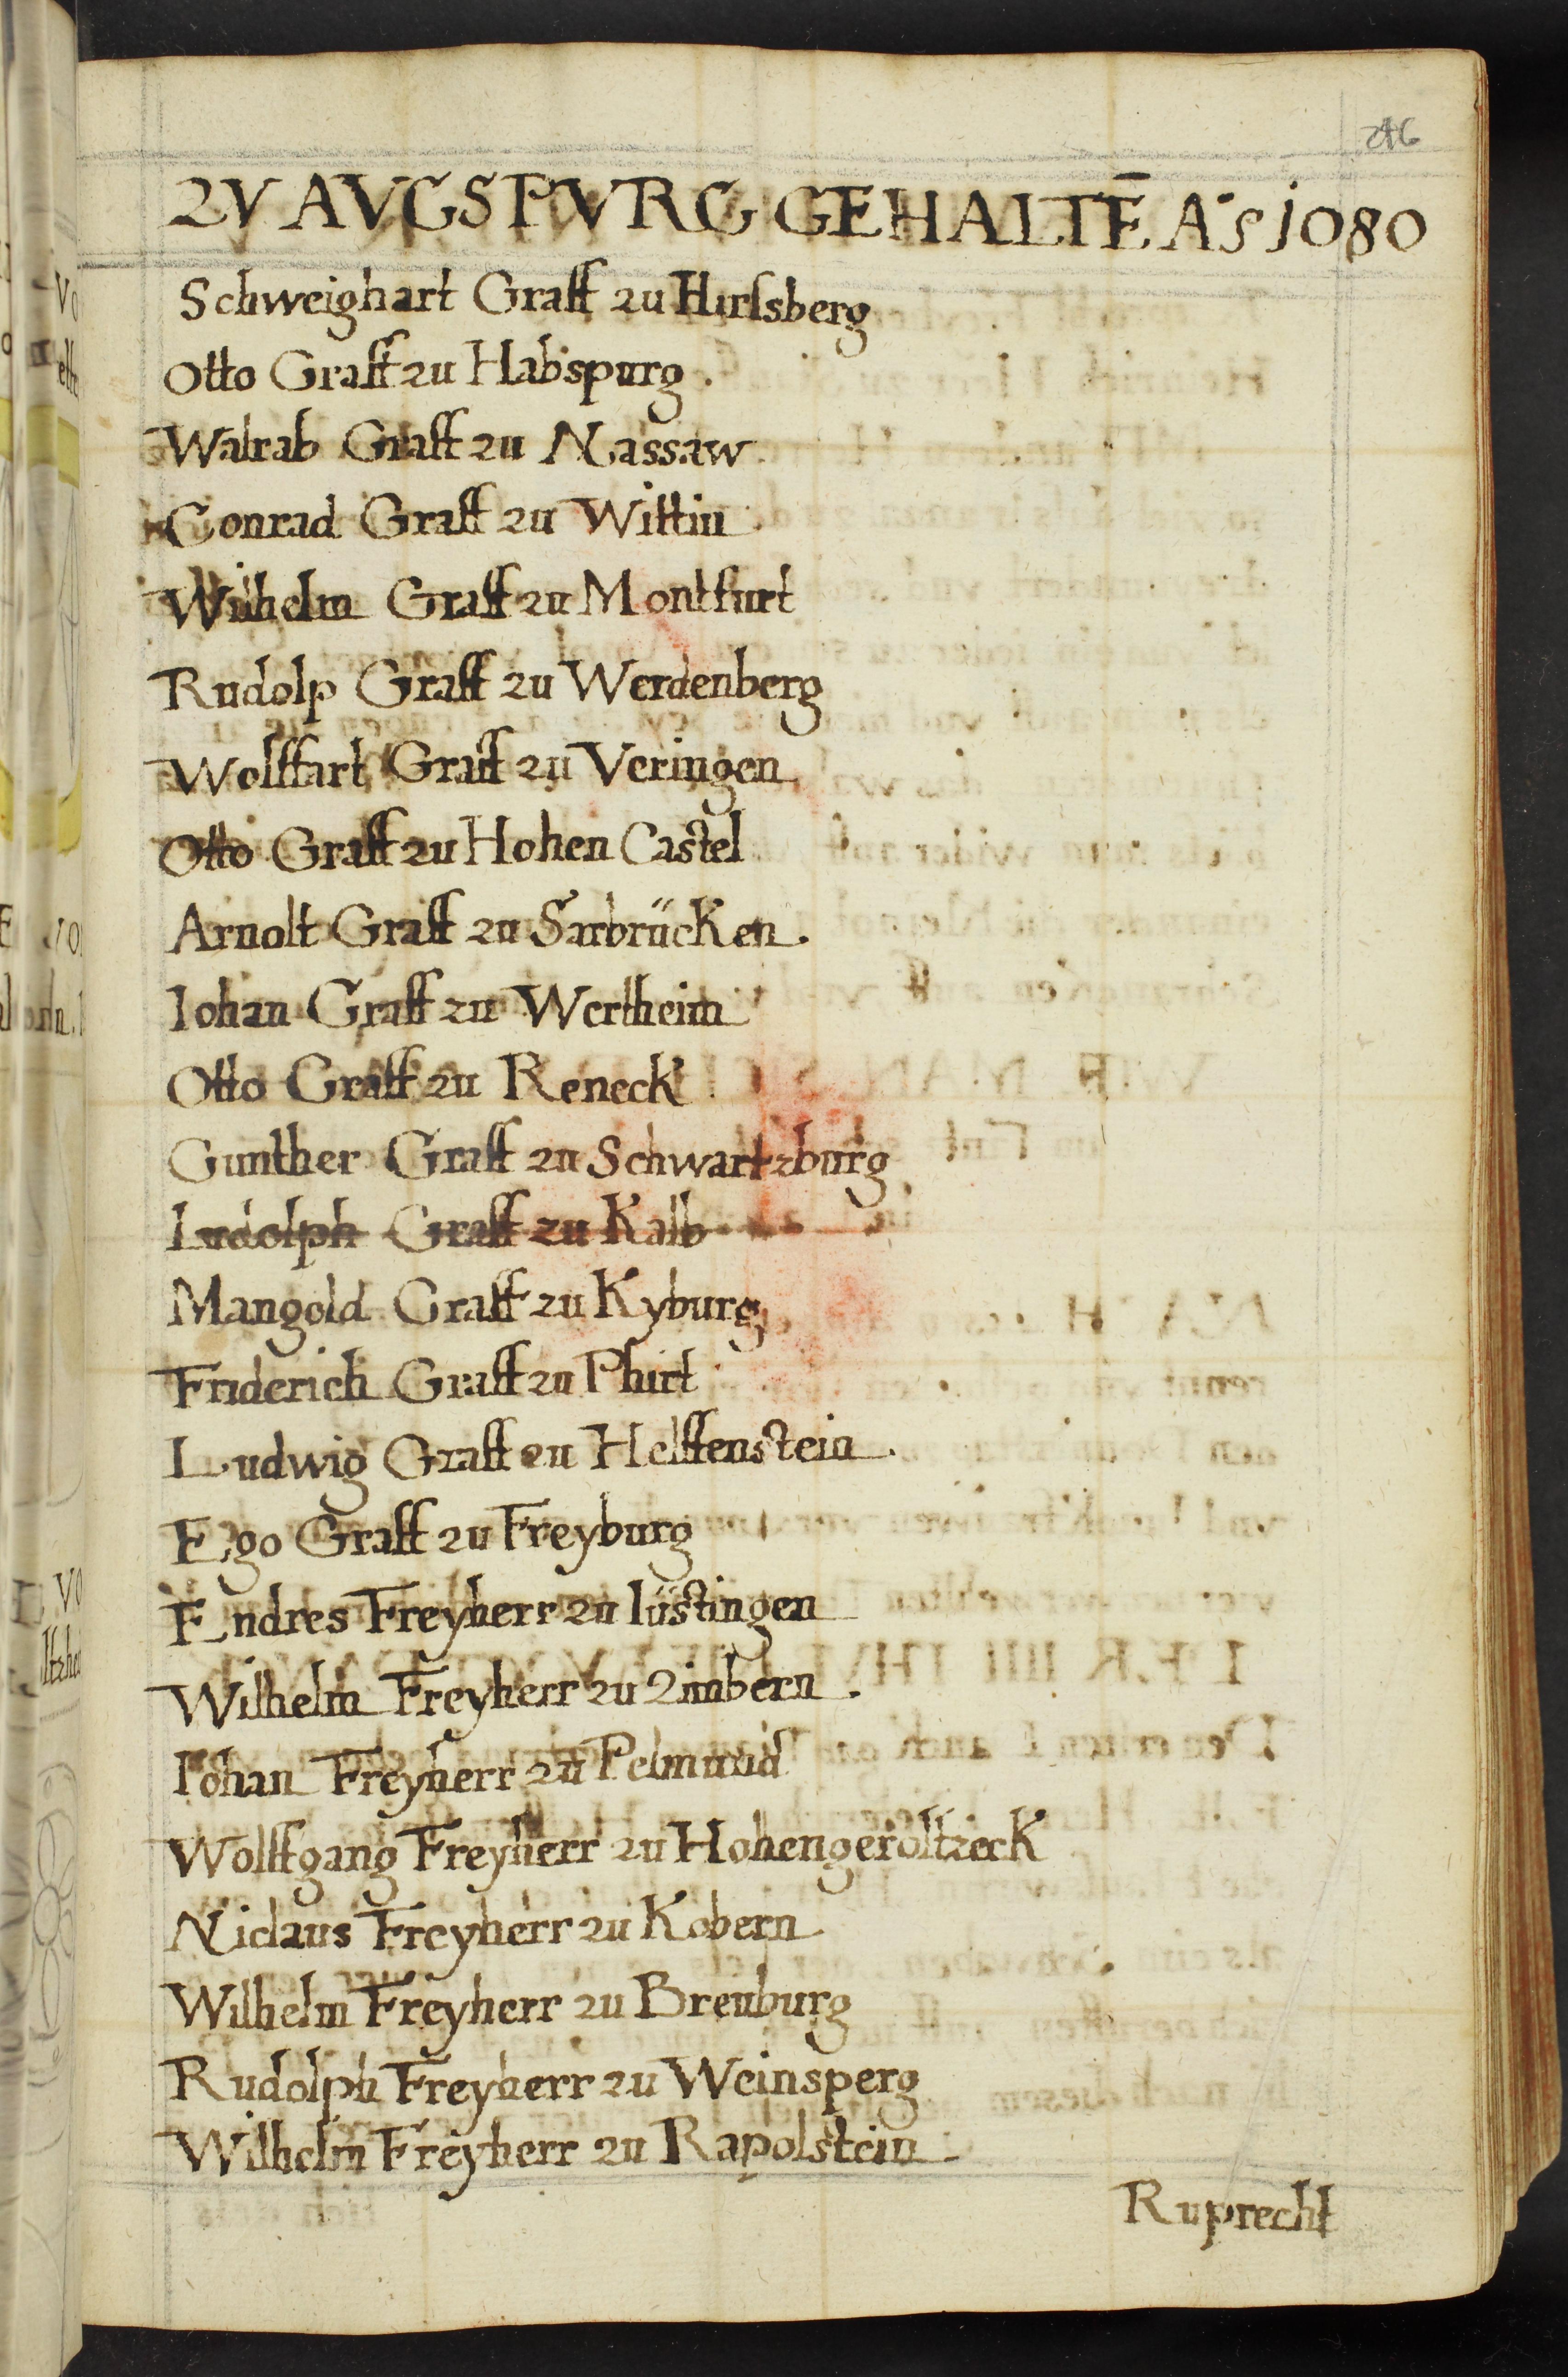 246
ZV AVGSPVRG GEHALTĒ A°s 1080
Schweighart Graff zu Hirssberg
Otto Graff zu Habspurg.
Walrab Graff zu Nassaw.
Conrad Graff zu Wittin
Wilhelm Graff zu Montfurt
Rudolp Graff zu Werdenberg
Wolffart Graff zu Veringen
Otto Graff zu Hohen Castel
Arnolt Graff zu Sarbrücken.
Iohan Graff zu Wertheim
Otto Graff zu Reneck
Gunther Graff zu Schwartzburg
Ludolph Graff zu Kalb
Mangold Graff zu Kyburg
Friderich Graff zu Phirt
Ludwig Graff zu Helffenstein.
Ego Graff zu Freyburg
Endres Freyherr zu lüstingen
Wilhelm Freyherr zu Zimbern.
Iohan Freyherr zu Pelmund
Wolffgang Freyherr zu Hohengeroltzeck
Niclaus Freyherr zu Kobern
Wilhelm Freyherr zu Breuburg
Rudolph Freyherr zu Weinsperg
Wilhelm Freyherr zu Rapolstein.
Ruprecht